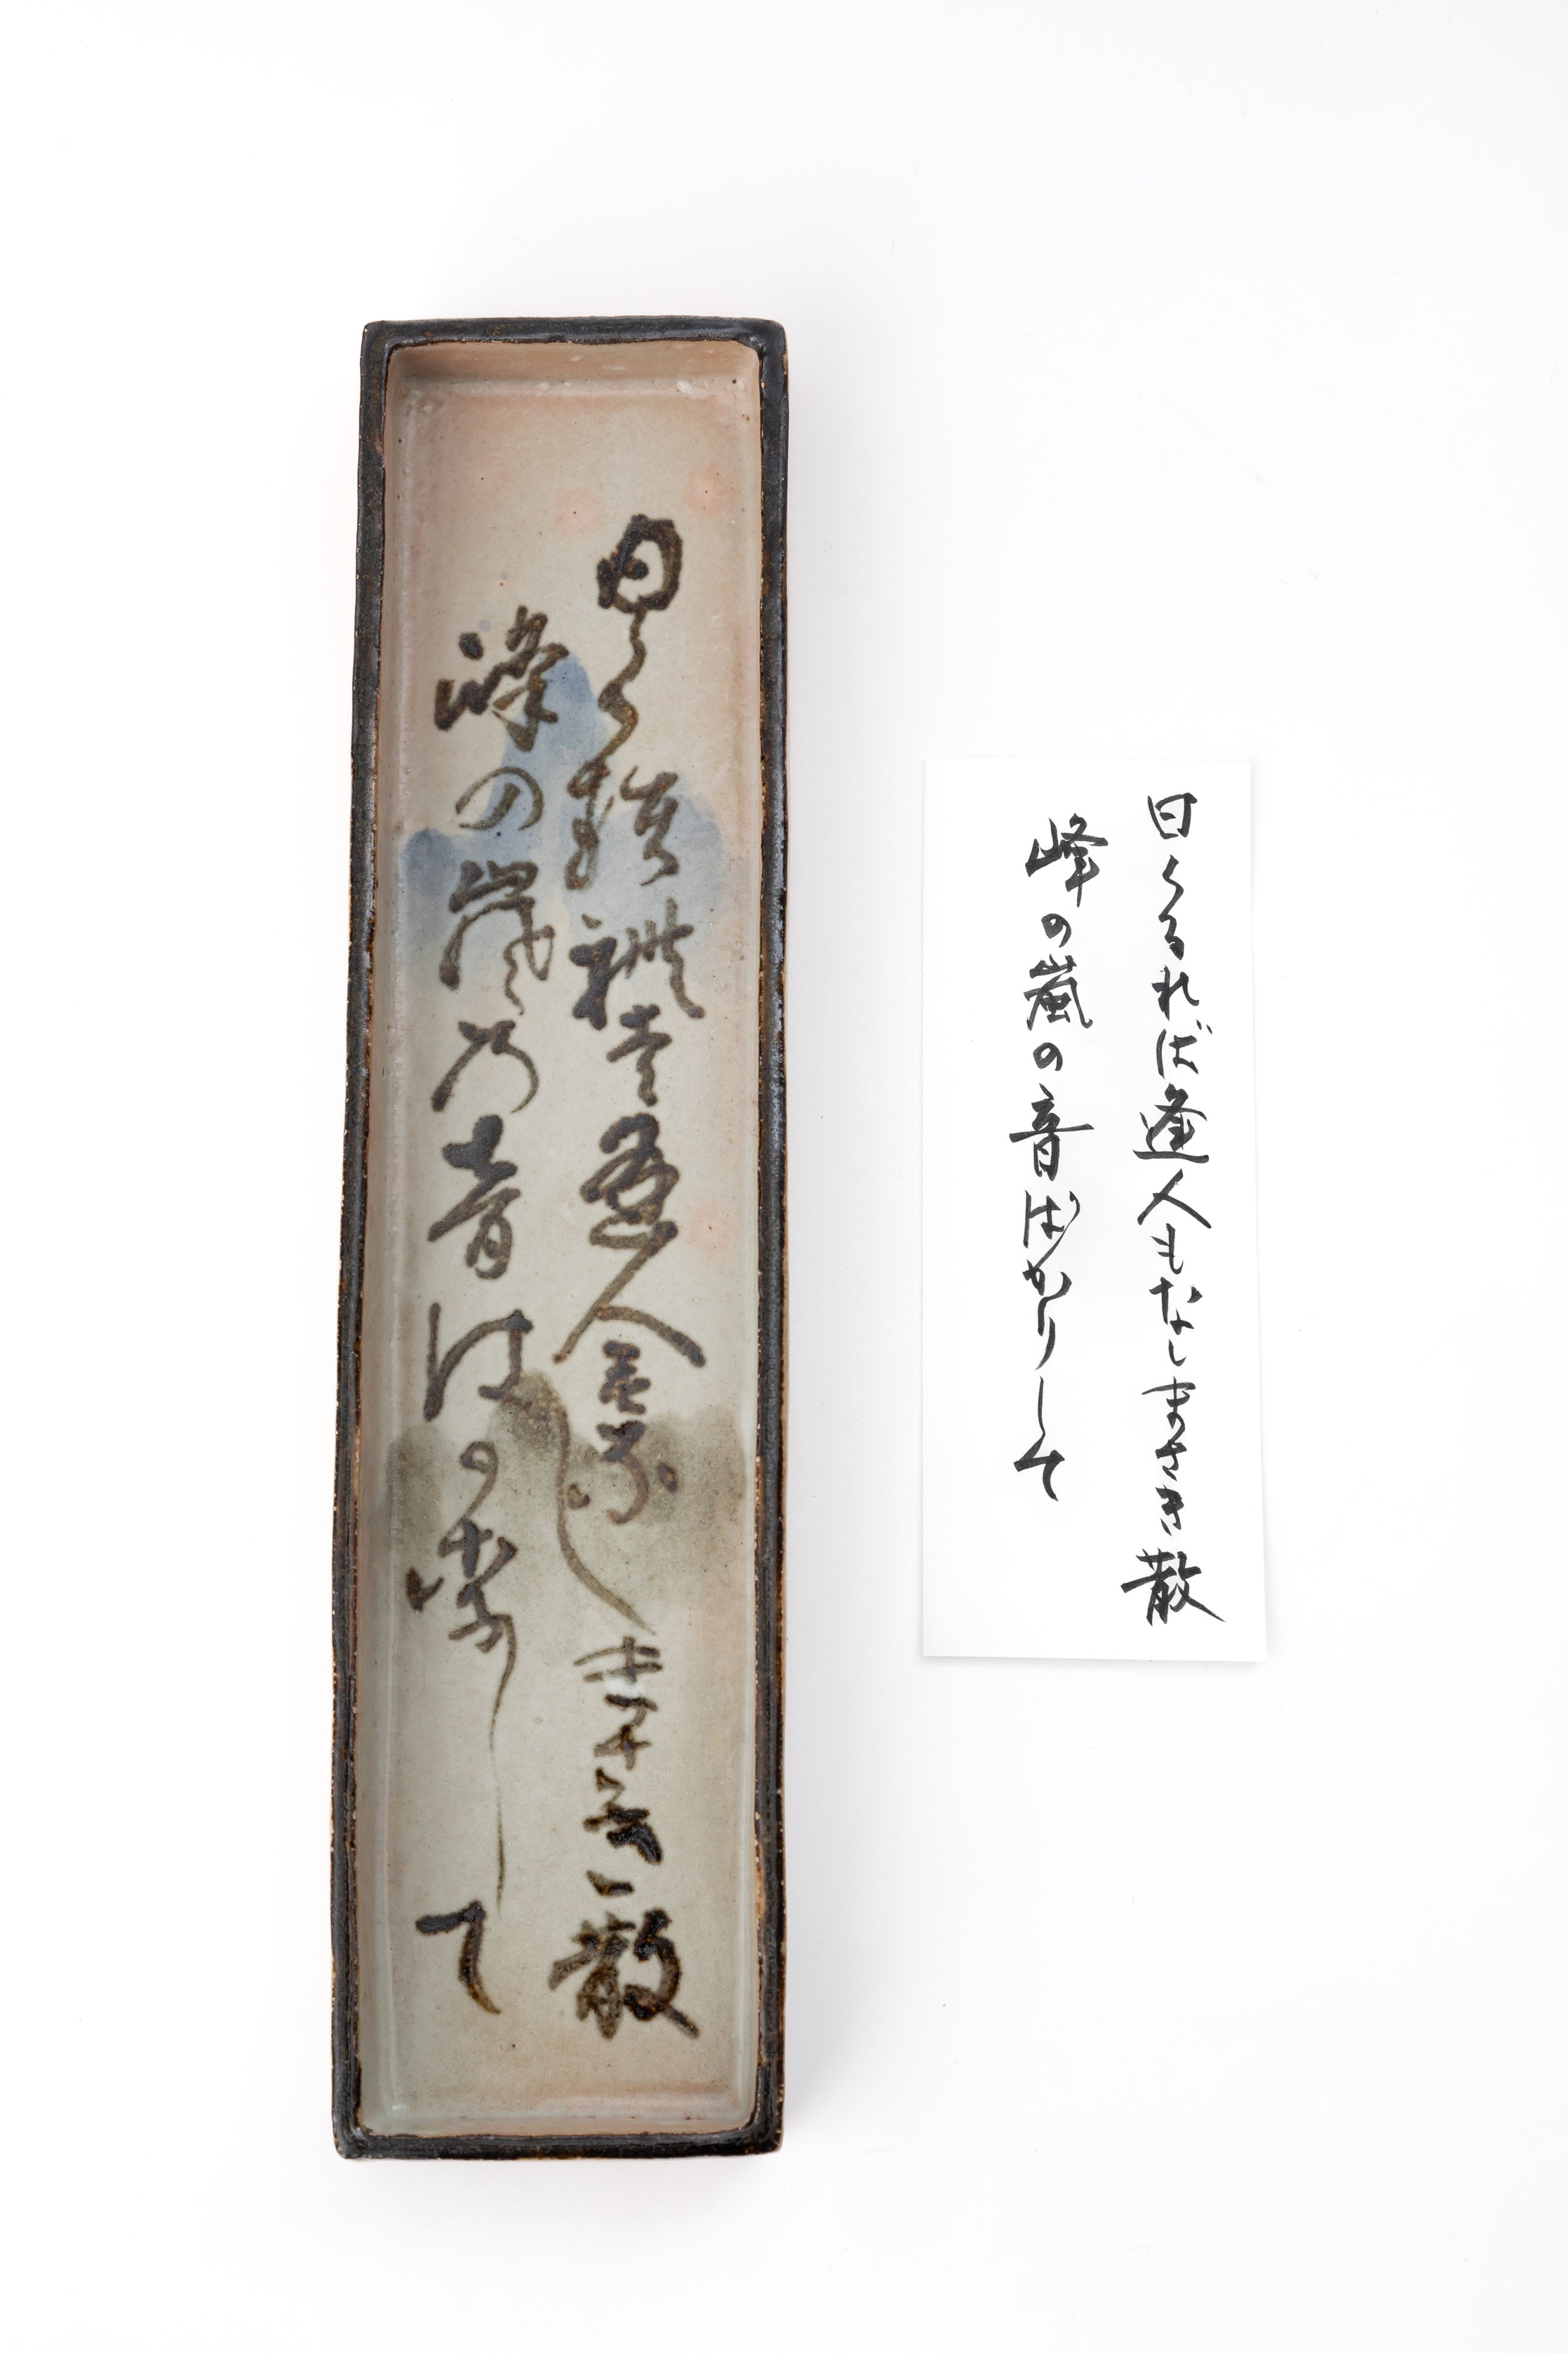 日くるれは逢人もなしまさき散
峰の嵐の音はかりして
日くるれば逢人もなしまさき散
峰の嵐の音ばかりして